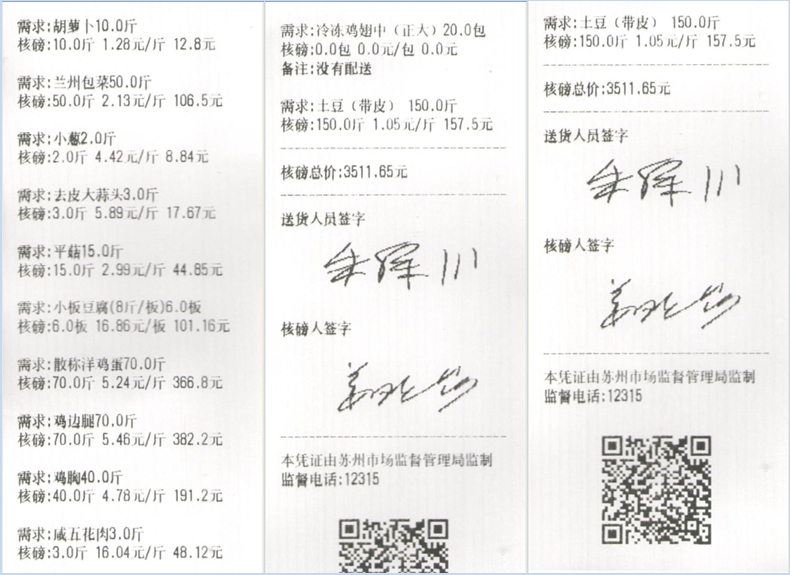 需求:胡萝卜10.0斤
核磅:10.0斤 1.28元/斤 12.8元
需求:兰州包菜50.0斤
核磅:50.0斤 2.13元/斤 106.5元
需求:小葱2.0斤
核磅:2.0斤 4.42元/斤 8.84元
需求:去皮大蒜头3.0斤
核磅:3.0斤 5.89元/斤 17.67元
需求:平菇15.0斤
核磅:15.0斤 2.99元/斤 44.85元
需求:小板豆腐(8斤/板)6.0板
核磅:6.0板 16.86元/板 101.16元
需求:散称洋鸡蛋70.0斤
核磅:70.0斤 5.24元/斤 366.8元
需求:鸡边腿70.0斤
核磅:70.0斤 5.46元/斤 382.2元
需求:鸡胸40.0斤
核磅:40.0斤 4.78元/斤 191.2元
需求:咸五花肉3.0斤
核磅:3.0斤 16.04元/斤 48.12元
需求:冷冻鸡翅中（正大）20.0包
核磅:0.0包 0.0元/包 0.0元
备注:没有配送
需求:土豆（带皮） 150.0斤
核磅:150.0斤 1.05元/斤 157.5元
核磅总价:3511.65元
送货人员签字
核磅人签字
本凭证由苏州市场监督管理局监制
监督电话:12315
需求:土豆（带皮） 150.0斤
核磅:150.0斤 1.05元/斤 157.5元
核磅总价:3511.65元
送货人员签字
核磅人签字
本凭证由苏州市场监督管理局监制
监督电话:12315